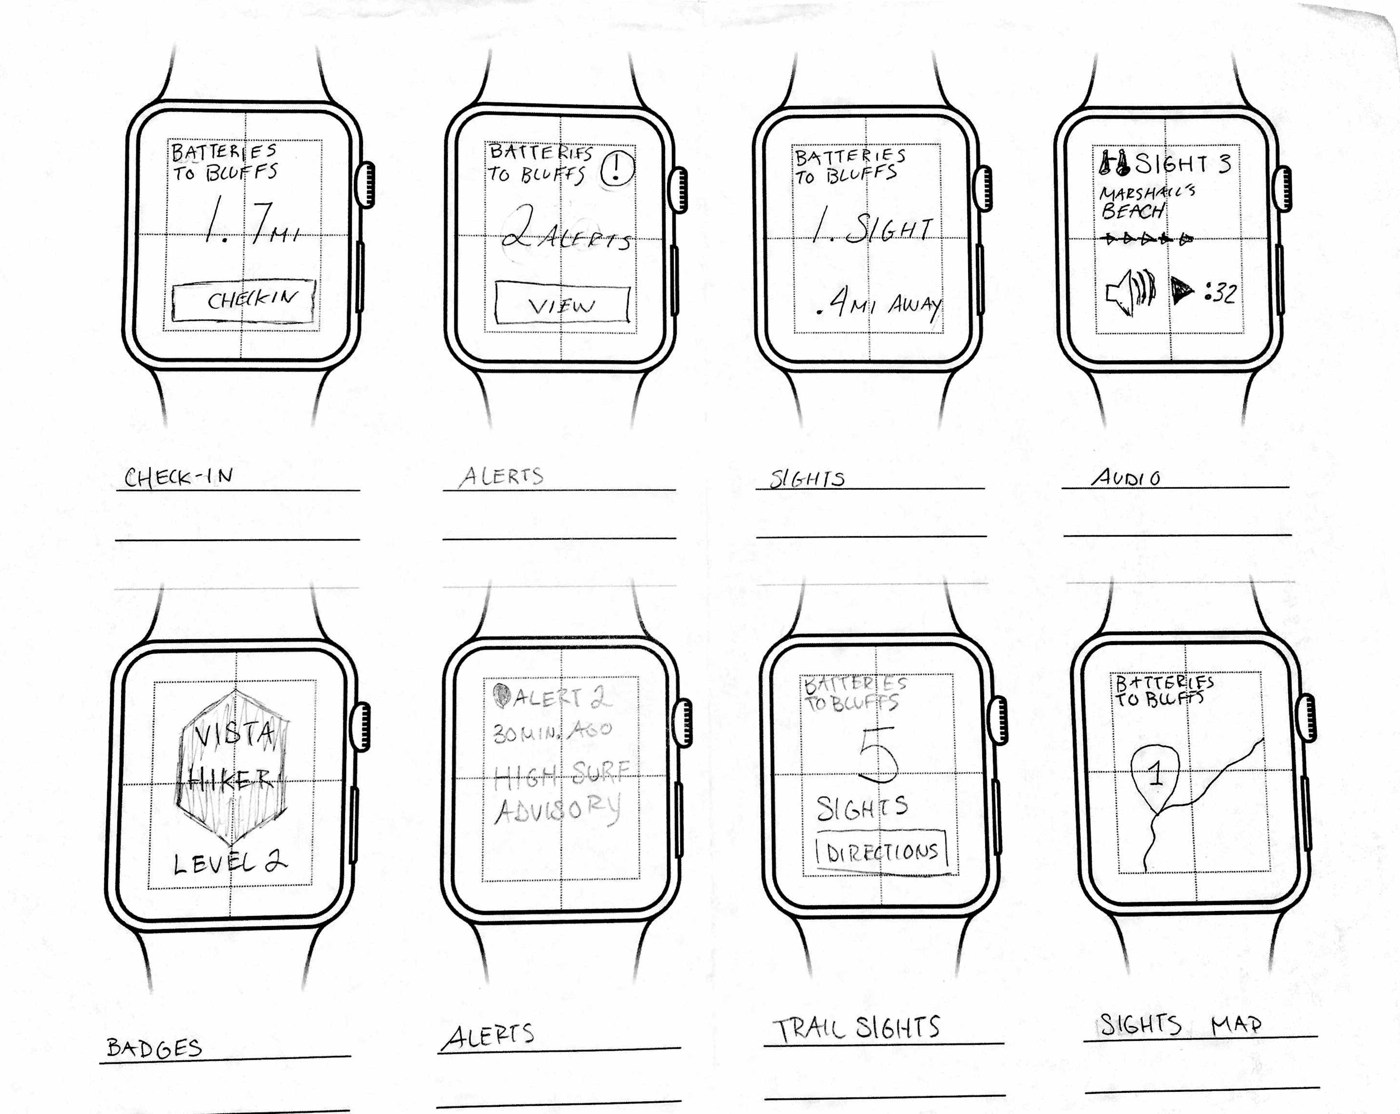 BATTERIES
TO BLUFFS
1.7 MI
CHECKIN
CHECK-IN
BATTERIES
TO BLUFFS
!
2 ALERTS
VIEW
ALERTS
BATTERIES
TO BLUFFS
1. SIGHT
.4 MI AWAY
SIGHTS
SIGHT 3
MARSHALL'S
BEACH
:32
AUDIO
VISTA
HIKER
LEVEL 2
BADGES
ALERT 2
30 MIN. AGO
HIGH SURF
ADVISORY
ALERTS
BATTERIES
TO BLUFFS
5
SIGHTS
DIRECTIONS
TRAIL SIGHTS
BATTERIES
TO BLUFFS
1
SIGHTS MAP